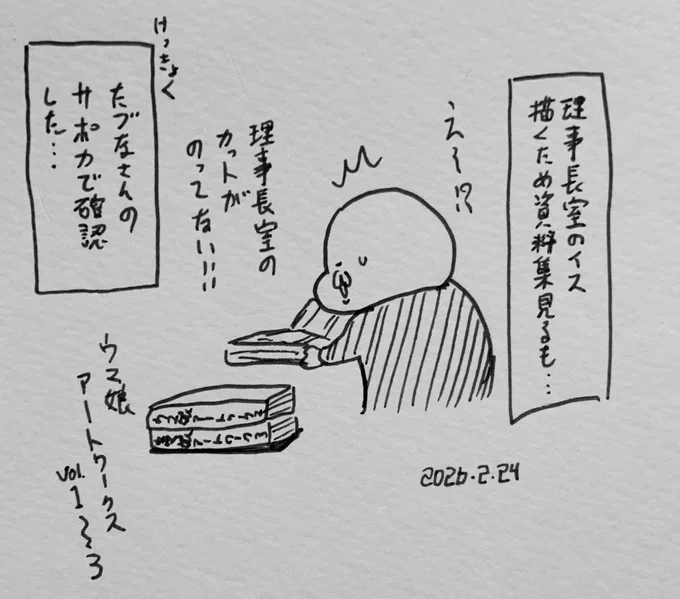 理事長室のイス
描くため資料集見るも…
え〜!?
理事長室の
カットが
のってない!!
けっきょく
たづなさんの
サポカで確認
した…
ウマ娘
アートワークス
vol.1〜3
2026.2.24